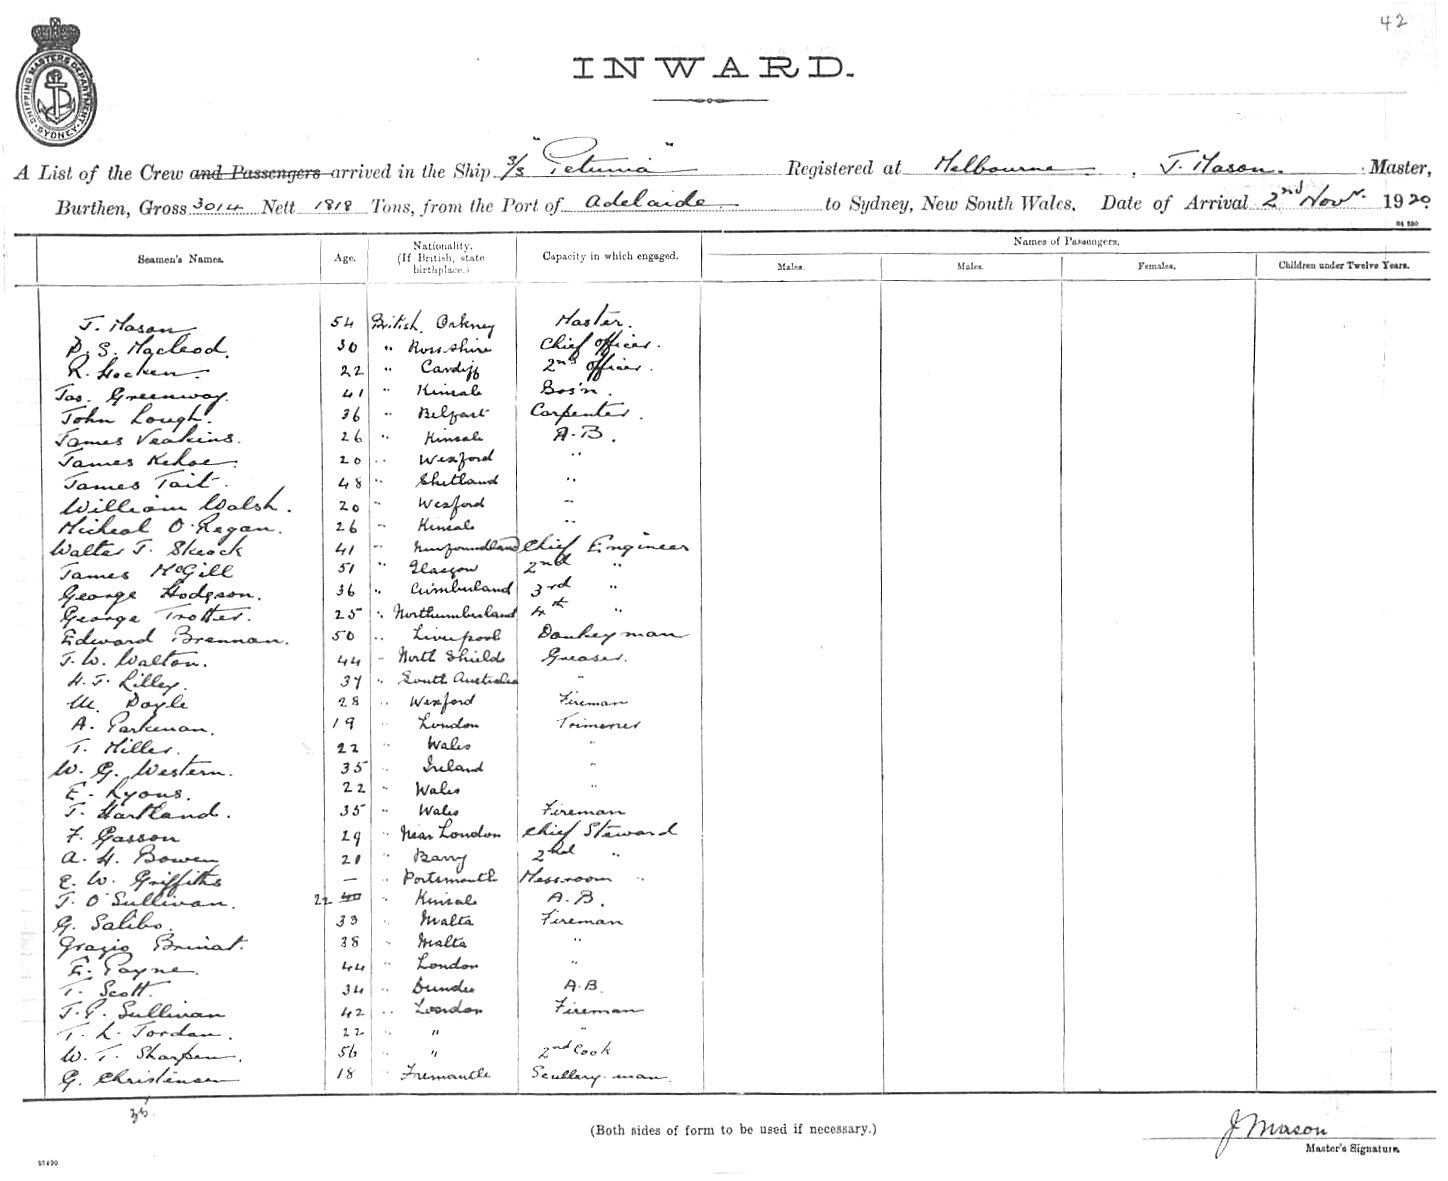 42
SHIPPING MASTERS DEPARTMENT SYDNEY
INWARD.
A List of the Crew and Passengers arrived in the Ship S/S "Petunia" Registered at Melbourne, J. Mason. Master,
Burthen, Gross 3014 Nett 1818 Tons, from the Port of Adelaide to Sydney, New South Wales. Date of Arrival 2nd Novr. 1920
Seamen's Names. Age. Nationality. (If British, state birthplace.) Capacity in which engaged. Names of Passengers.
Males. Males. Females. Children under Twelve Years.
J. Mason 54 British. Orkney Master.
D. S. Macleod. 30 " Ross shire Chief officer.
R. Hocken. 22 " Cardiff 2nd officer.
Jas. Greenway. 41 " Kinsale Bos'n.
John Lough. 36 " Belfast Carpenter.
James Veakins. 26 " Kinsale A.B.
James Kehoe. 20 " Wexford "
James Tait. 48 " Shetland "
William Walsh. 20 " Wexford "
Micheal O'Regan. 26 " Kinsale "
Walter J. 41 " Newfoundland Chief Engineer
James McGill 51 " Glasgow 2nd "
George Hodgson. 36 " Cumberland 3rd "
George Trotter. 25 " Northumberland 4th "
Edward Brennan. 50 " Liverpool Donkeyman
J. W. Walton. 44 " North Shields Greaser.
H. J. Lilley. 37 " South Australia "
M. Doyle 28 " Wexford Fireman
A. Parkman. 19 " London Trimmer
T. Miller. 22 " Wales "
W. G. Western. 35 " Ireland "
E. Lyons. 22 " Wales "
T. Hartland. 35 " Wales Fireman
F. Gasson 29 " Near London Chief Steward
A. H. Bowen 21 " Barry 2nd "
E. W. Griffiths — " Portsmouth Messroom "
J. O'Sullivan. 22 40 " Kinsale A.B.
G. Salibo. 33 " Malta Fireman
Grazio Brinat. 38 " Malta "
E. Payne. 44 " London "
T. Scott. 34 " Dundee A.B.
J. P. Sullivan 42 " London Fireman
T. L. Jordan. 22 " " "
W. T. Sharpen. 56 " " 2nd Cook
G. Christensen 18 " Fremantle Scullery man.
35
(Both sides of form to be used if necessary.)
J Mason
Master's Signature.